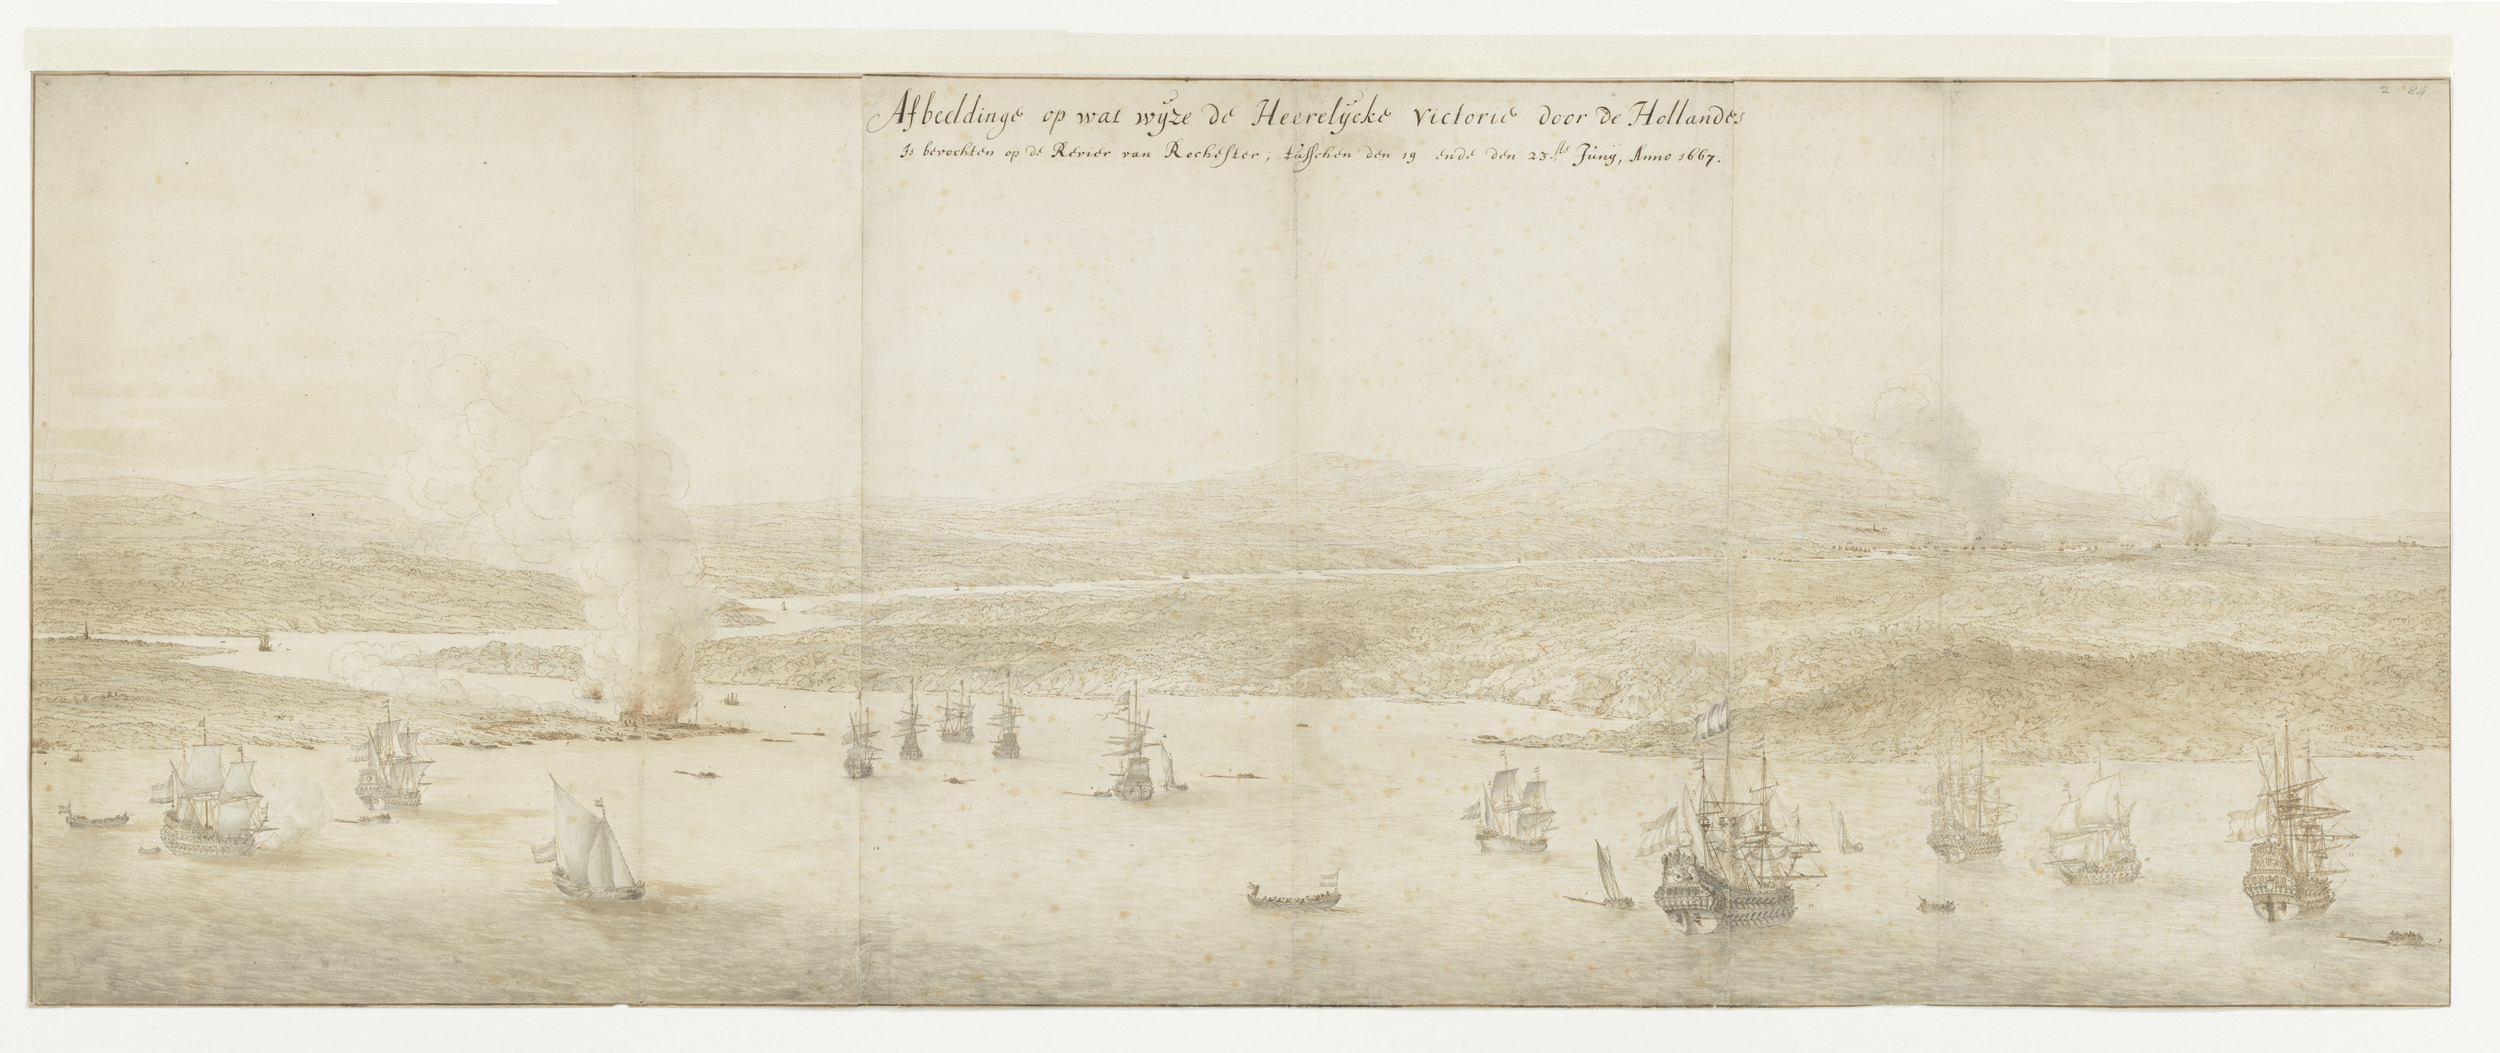 Afbeeldinge op wat wyze de Heerelÿcke Victorie door de Hollandes
Is bevochten op de Revier van Rochester; tusschen den 19 ende den 23ste Junÿ, Anno 1667.
2 84